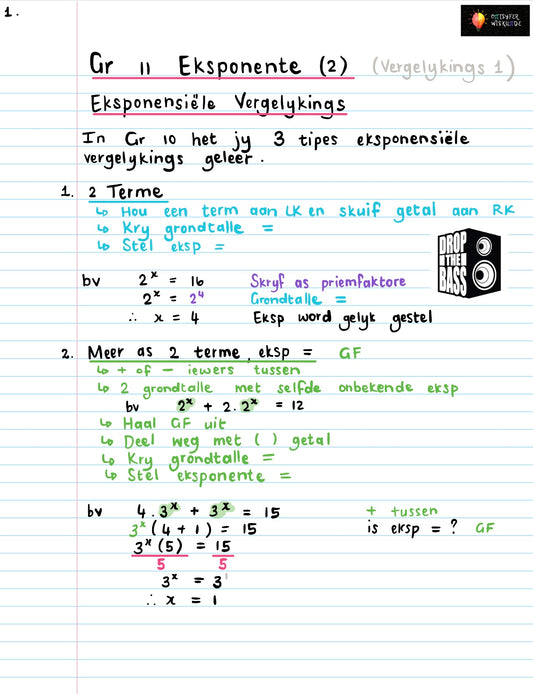 1.
ONTSYFER
WISKUNDE
Gr 11 Eksponente (2) (Vergelykings 1)
Eksponensiële Vergelykings
In Gr 10 het jy 3 tipes eksponensiële
vergelykings geleer.
1. 2 Terme
↳ Hou een term aan LK en skuif getal aan RK
↳ Kry grondtalle =
↳ Stel eksp =
DROP
THE
BASS
bv 2ˣ = 16 Skryf as priemfaktore
2ˣ = 2⁴ Grondtalle =
∴ x = 4 Eksp word gelyk gestel
2. Meer as 2 terme, eksp = GF
↳ + of − iewers tussen
↳ 2 grondtalle met selfde onbekende eksp
bv 2ˣ + 2.2ˣ = 12
↳ Haal GF uit
↳ Deel weg met ( ) getal
↳ Kry grondtalle =
↳ Stel eksponente =
bv 4.3ˣ + 3ˣ = 15 + tussen
3ˣ(4 + 1) = 15 is eksp = ? GF
3ˣ(5) = 15
5 5
3ˣ = 3¹
∴ x = 1